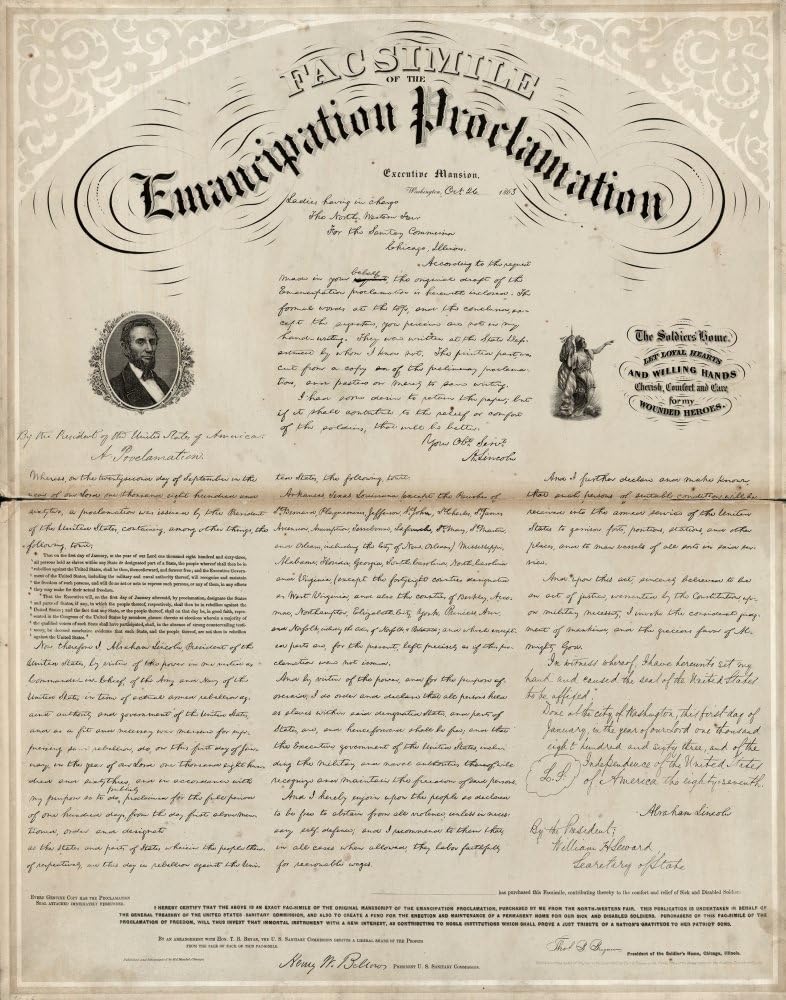 FAC SIMILE
OF THE
Emancipation Proclamation
Executive Mansion,
Washington, Oct 26 1863
Ladies having in charge
The North Western Fair
For the Sanitary Commission
Chicago, Illinois.
According to the request
made in your behalf, the original draft of the
Emancipation proclamation is herewith inclosed. The
formal words at the top, and the conclusion, ex-
cept the signature, you perceive are not in my
hand-writing. They were written at the State Dep-
artment by whom I know not. The printed part was
cut from a copy of the preliminary proclama-
tion, and pasted on merely to save writing.
I had some desire to retain the paper; but
if it shall contribute to the relief or comfort
of the soldiers, that will be better.
Your Obt. Servt.
A. Lincoln
The Soldiers' Home.
LET LOYAL HEARTS
AND WILLING HANDS
Cherish, Comfort and Care,
for my
WOUNDED HEROES.
By the President of the United States of America:
A Proclamation.
Whereas, on the twentysecond day of September, in the
year of our Lord one thousand eight hundred and
sixty two, a proclamation was issued by the President
of the United States, containing, among other things, the
following, towit:
"That on the first day of January, in the year of our Lord one thousand eight hundred and sixty-three,
all persons held as slaves within any State or designated part of a State, the people whereof shall then be in
rebellion against the United States, shall be then, thenceforward, and forever free; and the Executive Govern-
ment of the United States, including the military and naval authority thereof, will recognize and maintain
the freedom of such persons, and will do no act or acts to repress such persons, or any of them, in any efforts
they may make for their actual freedom.
"That the Executive will, on the first day of January aforesaid, by proclamation, designate the States
and parts of States, if any, in which the people thereof, respectively, shall then be in rebellion against the
United States; and the fact that any State, or the people thereof, shall on that day be, in good faith, repre-
sented in the Congress of the United States by members chosen thereto at elections wherein a majority of
the qualified voters of such State shall have participated, shall, in the absence of strong countervailing testi-
mony, be deemed conclusive evidence that such State, and the people thereof, are not then in rebellion
against the United States."
Now, therefore I, Abraham Lincoln, President of the
United States, by virtue of the power in me vested as
Commander-in-Chief, of the Army and Navy of the
United States in time of actual armed rebellion ag-
ainst authority and government of the United States,
and as a fit and necessary war measure for sup-
pressing said rebellion, do, on this first day of Jan-
uary, in the year of our Lord one thousand eight hun-
dred and sixty three, and in accordance with
my purpose so to do, publicly proclaimed for the full period
of one hundred days, from the day first above men-
tioned, order and designate
as the States and parts of States wherein the people there-
of respectively, are this day in rebellion against the Uni-
ted States, the following, towit:
Arkansas, Texas, Louisiana, except the Parishes of
St. Bernard, Plaquemines, Jefferson, St. John, St. Charles, St. James
Ascension, Assumption, Terrebonne, Lafourche, St. Mary, St. Martin,
and Orleans, including the City of New Orleans) Mississippi,
Alabama, Florida, Georgia, South Carolina, North Carolina,
and Virginia, (except the fortyeight counties designated
as West Virginia, and also the counties of Berkley, Acco-
mac, Northampton, Elizabeth City, York, Princess Ann,
and Norfolk, including the cities of Norfolk & Portsmouth; and which except-
ed parts are, for the present, left precisely as if this pro-
clamation were not issued.
And by virtue of the power, and for the purpose af-
oresaid, I do order and declare that all persons held
as slaves within said designated States, and parts of
States, are, and henceforward shall be free; and that
the Executive government of the United States, inclu-
ding the military and naval authorities thereof, will
recognize and maintain the freedom of said persons.
And I hereby enjoin upon the people so declared
to be free to abstain from all violence, unless in neces-
sary self-defence; and I recommend to them that,
in all cases when allowed, they labor faithfully
for reasonable wages.
And I further declare and make known,
that such persons of suitable condition, will be
received into the armed service of the United
States to garrison forts, positions, stations, and other
places, and to man vessels of all sorts in said ser-
vice.
And upon this act, sincerely believed to be
an act of justice, warranted by the Constitution, up-
on military necessity, I invoke the considerate judg-
ment of mankind, and the gracious favor of Al-
mighty God.
In witness whereof, I have hereunto set my
hand and caused the seal of the United States
to be affixed
Done at the city of Washington, this first day of
January, in the year of our Lord one thousand
eight hundred and sixty three, and of the
Independence of the United States
of America the eighty-seventh.
L.S.
Abraham Lincoln
By the President;
William H. Seward
Secretary of State
has purchased this Facsimile, contributing thereby to the comfort and relief of Sick and Disabled Soldiers
EVERY GENUINE COPY HAS THE PROCLAMATION
SEAL ATTACHED IMMEDIATELY HEREUNDER.
I HEREBY CERTIFY THAT THE ABOVE IS AN EXACT FAC-SIMILE OF THE ORIGINAL MANUSCRIPT OF THE EMANCIPATION PROCLAMATION, PURCHASED BY ME FROM THE NORTH-WESTERN FAIR. THIS PUBLICATION IS UNDERTAKEN IN BEHALF OF
THE GENERAL TREASURY OF THE UNITED STATES SANITARY COMMISSION, AND ALSO TO CREATE A FUND FOR THE ERECTION AND MAINTENANCE OF A PERMANENT HOME FOR OUR SICK AND DISABLED SOLDIERS. PURCHASERS OF THIS FAC-SIMILE OF THE
PROCLAMATION OF FREEDOM, WILL THUS INVEST THAT IMMORTAL INSTRUMENT WITH A NEW INTEREST, AS CONTRIBUTING TO NOBLE INSTITUTIONS WHICH SHALL PROVE A JUST TRIBUTE OF A NATION'S GRATITUDE TO HER PATRIOT SONS.
BY AN ARRANGEMENT WITH HON. T. B. BRYAN, THE U. S. SANITARY COMMISSION DERIVES A LIBERAL SHARE OF THE PROFITS
FROM THE SALE OF EACH OF THIS FAC-SIMILE.
Thos. B. Bryan
President of the Soldier's Home, Chicago, Illinois.
Henry W. Bellows PRESIDENT U. S. SANITARY COMMISSION.